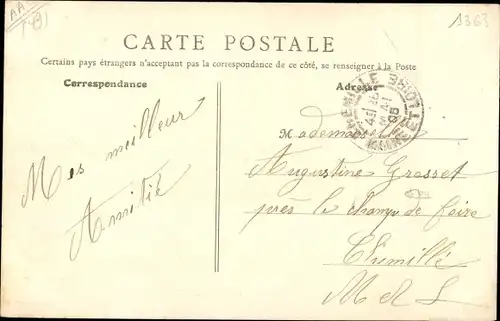 1363
CARTE POSTALE
Certains pays étrangers n'acceptant pas la correspondance de ce côté, se renseigner à la Poste
Correspondance
Adresse
Mes meilleur
Amitié
Mademoiselle
Augustine Grosset
près le champ de foire
Chemillé
M & L